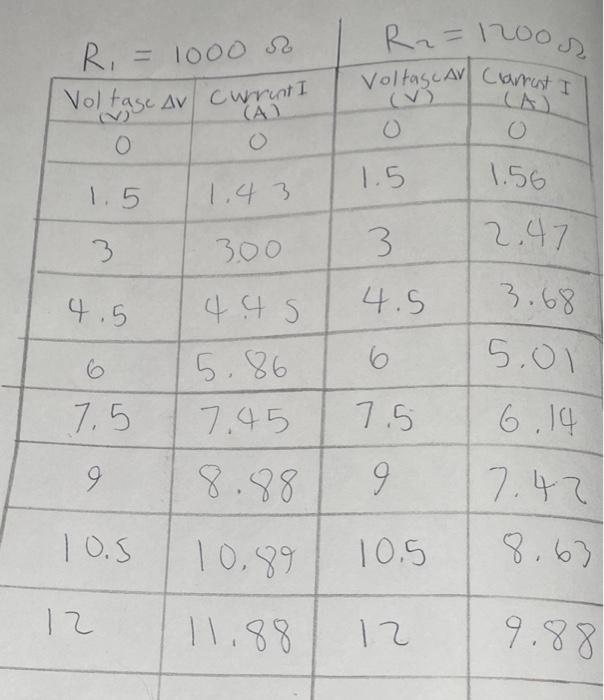 R₁ = 1000 Ω | R₂ = 1200 Ω
Voltage ΔV (V) Current I (A) Voltage ΔV (V) Current I (A)
0 0 0 0
1.5 1.43 1.5 1.56
3 3.00 3 2.47
4.5 4.45 4.5 3.68
6 5.86 6 5.01
7.5 7.45 7.5 6.14
9 8.88 9 7.42
10.5 10.89 10.5 8.63
12 11.88 12 9.88